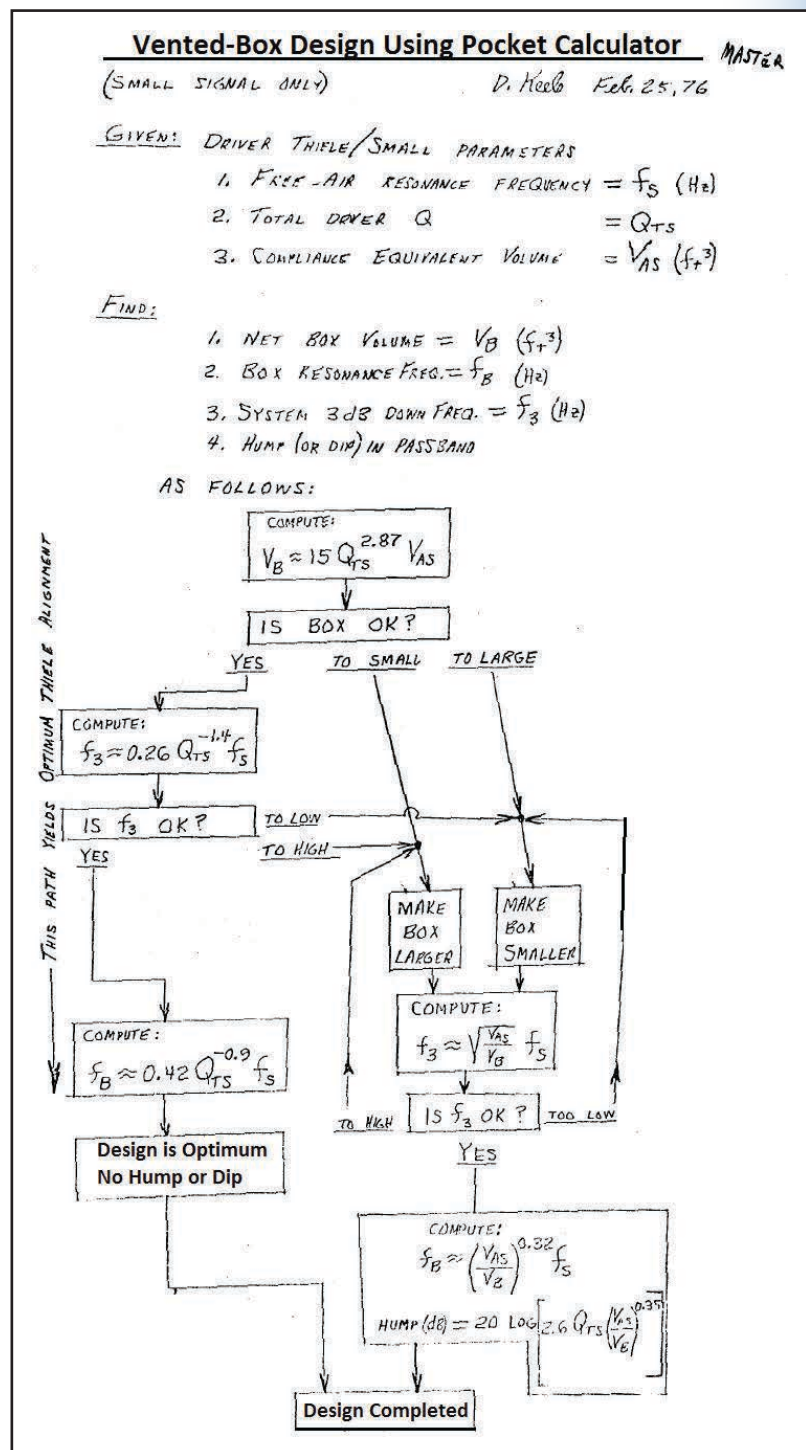 Vented-Box Design Using Pocket Calculator MASTER
(SMALL SIGNAL ONLY) D. Keele Feb. 25, 76
GIVEN: DRIVER THIELE/SMALL PARAMETERS
1. FREE-AIR RESONANCE FREQUENCY = fS (Hz)
2. TOTAL DRIVER Q = QTS
3. COMPLIANCE EQUIVALENT VOLUME = VAS (ft³)
FIND:
1. NET BOX VOLUME = VB (ft³)
2. BOX RESONANCE FREQ. = fB (Hz)
3. SYSTEM 3dB DOWN FREQ. = f3 (Hz)
4. HUMP (OR DIP) IN PASSBAND
AS FOLLOWS:
COMPUTE:
VB ≈ 15 QTS^2.87 VAS
IS BOX OK?
YES TO SMALL TO LARGE
THIS PATH YIELDS OPTIMUM THIELE ALIGNMENT
COMPUTE:
f3 ≈ 0.26 QTS^-1.4 fS
IS f3 OK?
TO LOW
TO HIGH
YES
MAKE
BOX
LARGER
MAKE
BOX
SMALLER
COMPUTE:
f3 ≈ √(VAS/VB) fS
COMPUTE:
fB ≈ 0.42 QTS^-0.9 fS
TO HIGH
IS f3 OK?
TOO LOW
YES
Design is Optimum
No Hump or Dip
COMPUTE:
fB ≈ (VAS/VB)^0.32 fS
HUMP (dB) = 20 LOG[2.6 QTS (VAS/VB)^0.35]
Design Completed